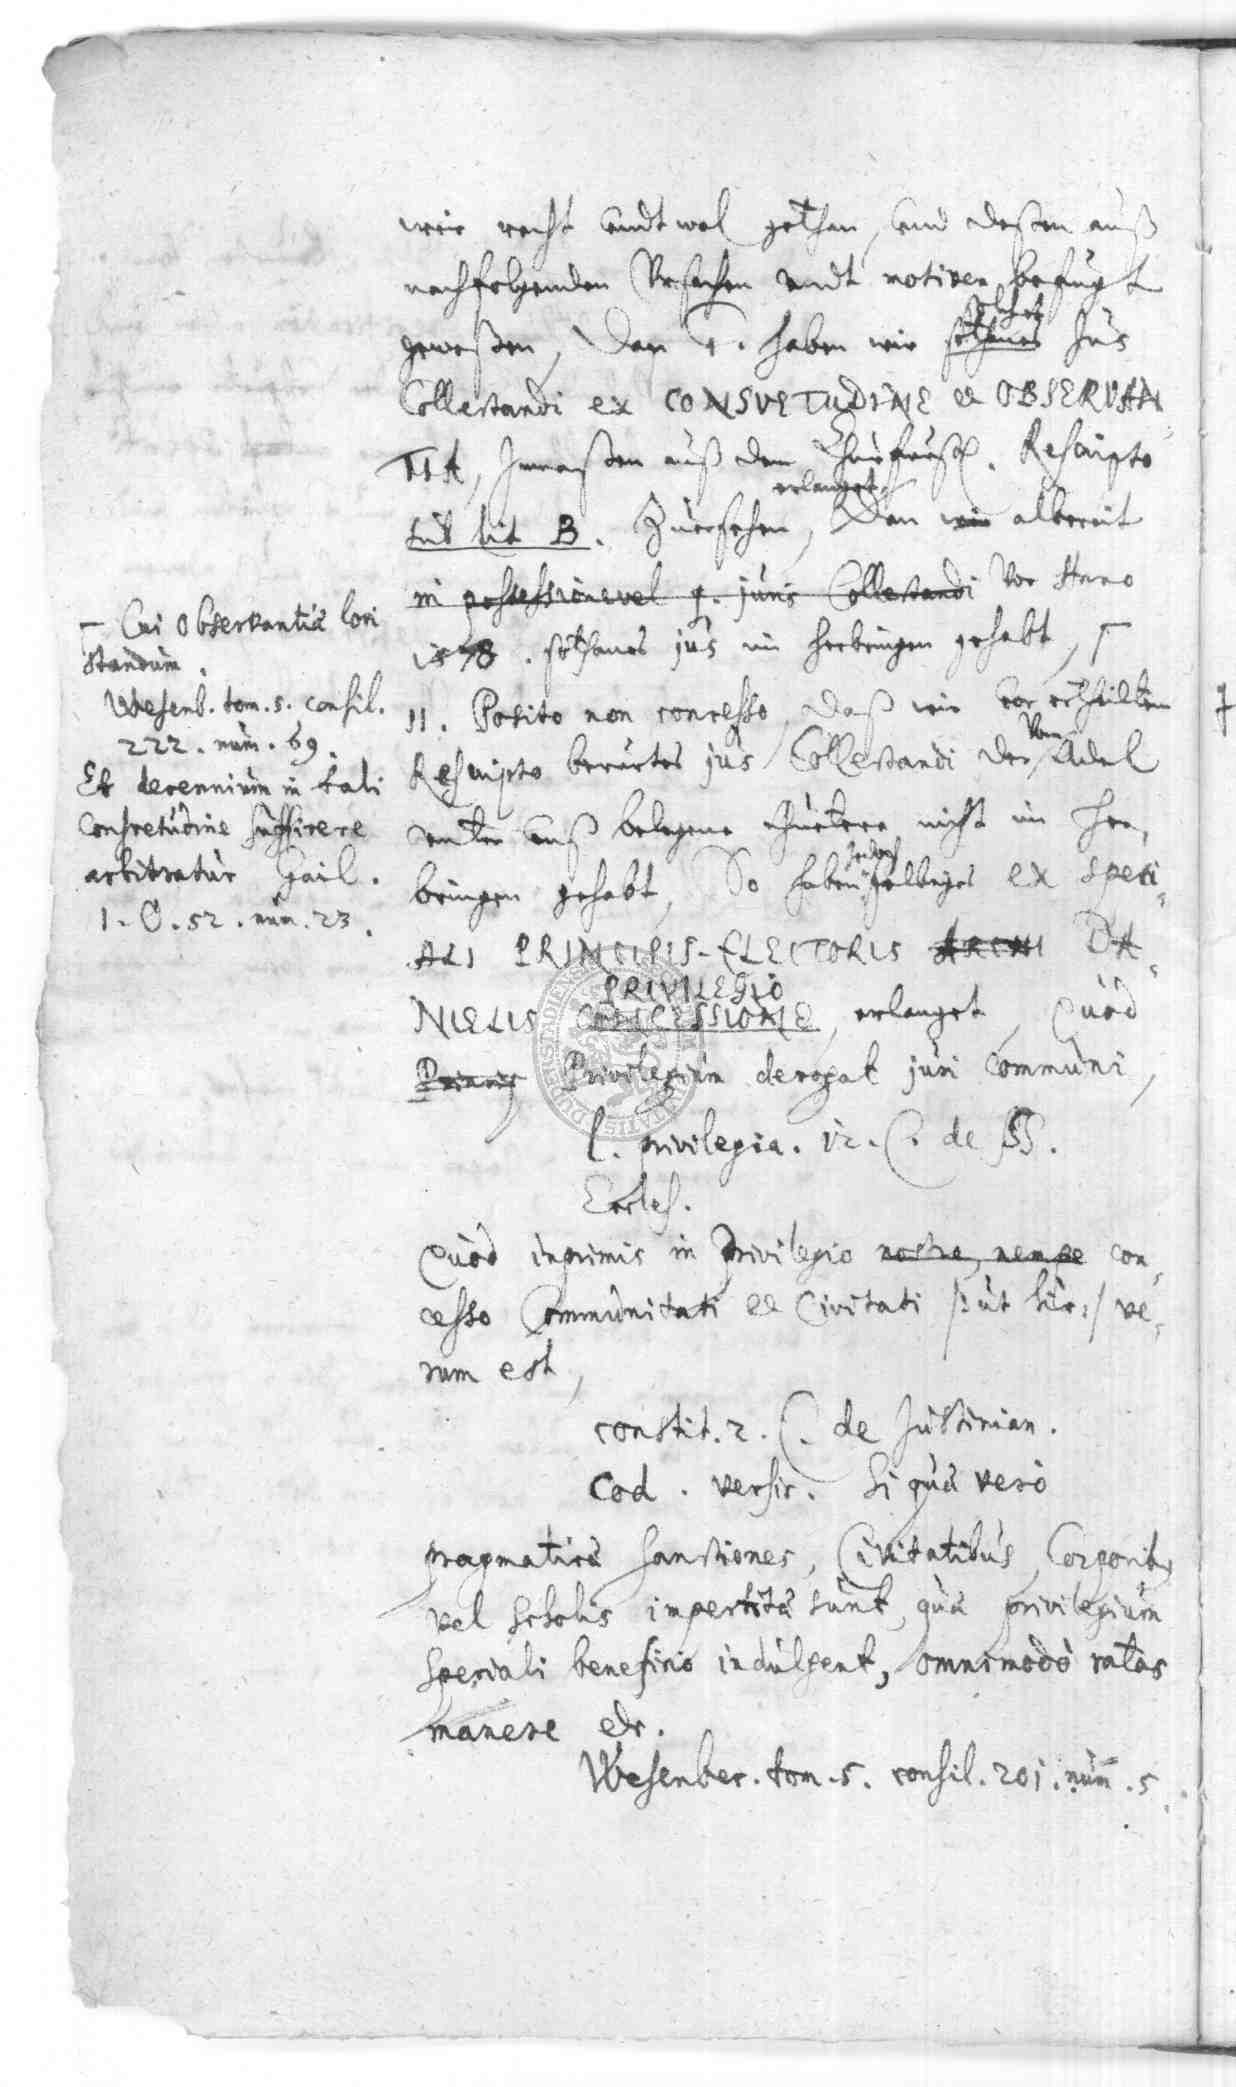 wir recht undt wol gethan, und deßen auß
nachfolgenden Ursachen undt motiven befügt
geweßen, Dan 1. haben wir sothanes solches Jus
Collectandi ex CONSVETUDINE et OBSERVAN
TIA, Inmaßen auß dem Churfürstl. Rescripto
sub lit B. Zuersehen, erlanget, Dan wir albereit
in possessione vel q. juris Collectandi vor Anno
1578. sothanes jus im herbringen gehabt,
II. Posito non concesso, Daß wir vor ertheilten
Rescripto berürtes jus Collectandi der Von Adel
unter unß belegene Güetere nicht im her,
bringen gehabt, So haben jedoch selbiges ex speci
ALI PRINCIPIS-ELECTORIS ARCHI DA
NIELIS CONCESSIONE PRIVILEGIO, erlanget, Quod
Privilegium derogat juri communi,
l. privilegia. 12. C. de SS.
Eccles.
Quod inprimis in Privilegio nostro, nempe con,
cesso Communitati et Civitati /: ut hic :/ ve,
rum est,
constit. 2. C. de Justinian.
Cod. versic. Si quæ vero
pragmaticæ sanctiones, Civitatibus, Corporib9
vel scholis impertitæ sunt, quæ privilegium
speciali beneficio indulgent, omnimodo ratas
manere etc.
Wesenbec. tom. 5. consil. 201. num. 5
Cui Observantiæ loci
standum.
Wesenb. tom. 5. consil.
222. num. 69.
Et decennium in tali
Consvetudine sufficere
arbitratur Gail.
1. O. 52. num. 23.